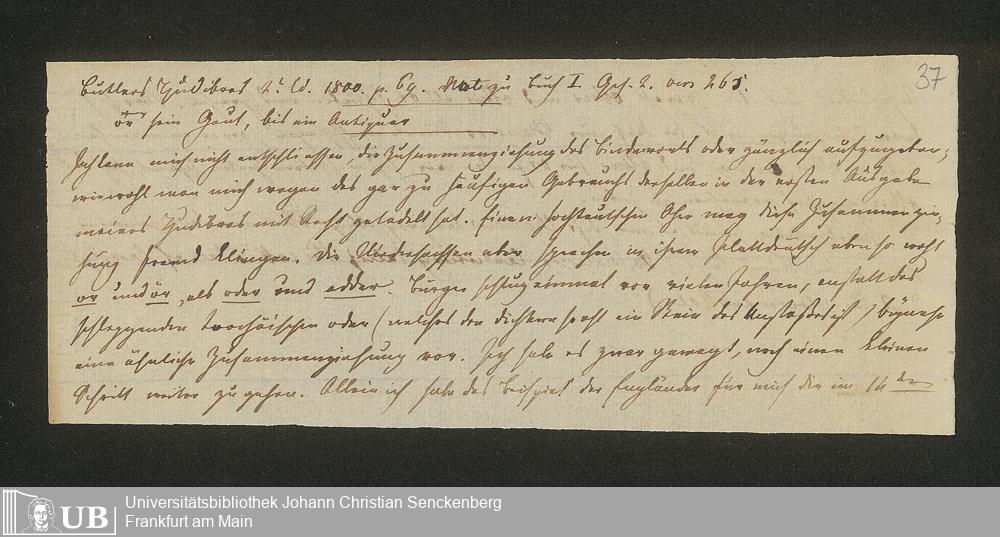 37
Butlers Hudibras 2. Ed. 1800. p. 69. Note zu Buch I. Ges. 2. vers 265.
or sein Gaul, bis ein Antiquar
Ich kann mich nicht entschliessen, die Zusammenziehung des Bindeworts oder gänzlich aufzugeben;
wiewohl man mich wegen des gar zu häufigen Gebrauchs derselben in der ersten Ausgabe
meines Hudibras mit Recht getadelt hat. Einem hochteutschen Ohr mag diese Zusammenzie-
hung fremd klingen. Die Niedersachsen aber sprechen in ihrem Plattdeutsch eben so wohl
or und ör, als oder und edder. Bürger schlug einmal vor vielen Jahren, anstatt des
schleppenden trochäischen oder (welches den Dichtern so oft ein Stein des Anstosses ist) beynahe
eine ähnliche Zusammenziehung vor. Ich habe es zwar gewagt, noch einen kleinen
Schritt weiter zu gehen. Allein ich habe das Beispiel der Engländer für mich die im 14ten
UB
Universitätsbibliothek Johann Christian Senckenberg
Frankfurt am Main